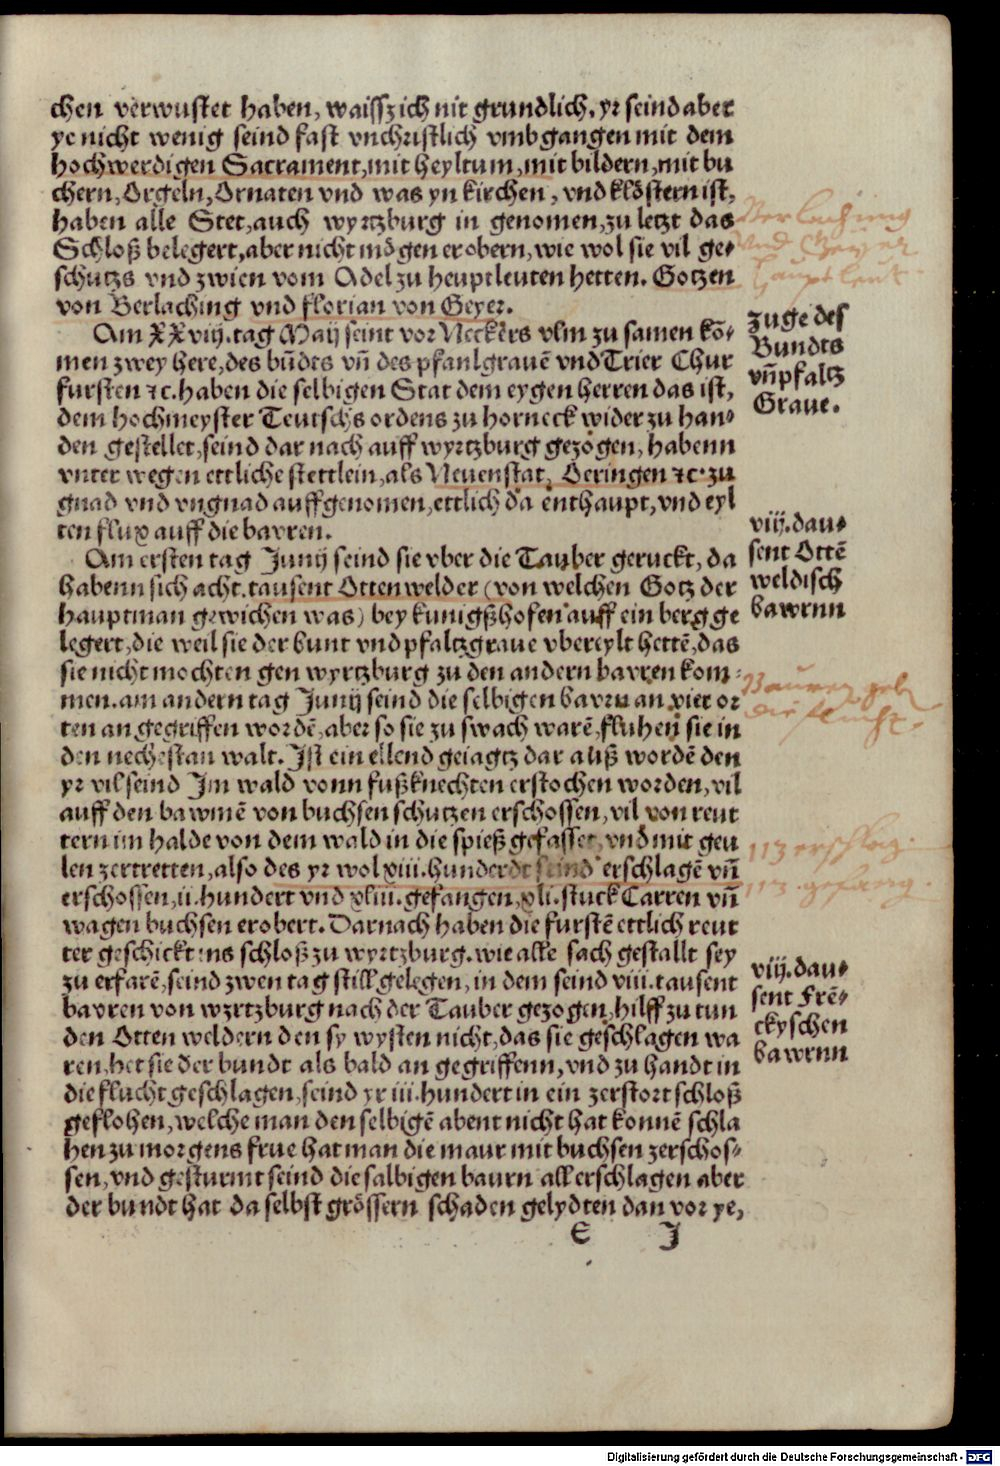 chen verwustet haben, waissz ich nit grundlich. yr seind aber
ye nicht wenig seind fast vnchristlich vmbgangen mit dem
hochwerdigen Sacrament, mit heyltum, mit bildern, mit bu
chern, Orgeln, Ornaten vnd was yn kirchen, vnd klöstern ist,
haben alle Stet, auch wyrtzburg in genomen, zu letzt das
Schloß belegert, aber nicht mögen erobern, wie wol sie vil ge-
schutzs vnd zwien vom Adel zu heuptleuten hetten. Gotzen
von Berlaching vnd florian von Geyer.
Berlachinng
vnd Geyer
Hauptleut
Am XXviij. tag Maij seint vor Neckers vlm zu samen kō-
men zwey here, des būdts vn̄ des pfanlgrauē vnd Trier Chur
fursten ⁊c. haben die selbigen Stat dem eygen herren das ist,
dem hochmeyster Teutschs ordens zu horneck wider zu han-
den gestellet, seind dar nach auff wyrtzburg gezogen, habenn
vnter wegen ettliche stettlein, als Neuenstat, Oeringen ⁊c. zu
gnad vnd vngnad auffgenomen, ettlich da enthaupt, vnd eyl
ten flux auff die bavren.
zuge des
Bundts
vn̄ pfaltz
Graue.
Am ersten tag Junij seind sie vber die Tauber geruckt, da
habenn sich acht. tausent Ottenwelder (von welchen Gotz der
hauptman gewichen was) bey kunigßhofen auff ein berg ge
legert, die weil sie der bunt vnd pfaltzgraue vbereylt hettē, das
sie nicht mochten gen wyrtzburg zu den andern bavren kom-
men. am andern tag Junij seind die selbigen bavrn an vier or
ten an gegriffen wordē, aber so sie zu swach warē, fluhen sie in
den nechestan walt. Ist ein ellend geiagtz dar auß wordē den
yr vil seind Im wald vonn fußknechten erstochen worden, vil
auff den bawmē von buchsen schutzen erschossen, vil von reut
tern im halde von dem wald in die spieß gefasset, vnd mit geu
len zertretten, also des yr wol xiii. hunderdt seind erschlagē vn̄
erschossen, ii. hundert vnd xliii. gefangen, xli. stuck Carren vn̄
wagen buchsen erobert. Darnach haben die furstē ettlich reut
ter geschickt ins schloß zu wyrtzburg. wie alle sach gestallt sey
zu erfarē, seind zwen tag still gelegen, in dem seind viii. tausent
bavren von wzrtzburg nach der Tauber gezogen, hilff zu tun
den Otten weldern den sy wysten nicht, das sie geschlagen wa
ren, het sie der bundt als bald an gegriffenn, vnd zu handt in
die flucht geschlagen, seind yr iii. hundert in ein zerstort schloß
geflohen, welche man den selbigē abent nicht hat konnē schla
hen zu morgens frue hat man die maur mit buchsen zerschos-
sen, vnd gesturmt seind die salbigen baurn all erschlagen aber
der bundt hat da selbst grössern schaden gelydten dan vor ye,
viij. dau-
sent Ottē
weldisch
bawrnn
Bauren geben
die flucht.
113 erschlag.
113. gefang.
viij. dau-
sent Frē-
ckyschen
bawrnn
E J
Digitalisierung gefördert durch die Deutsche Forschungsgemeinschaft - DFG